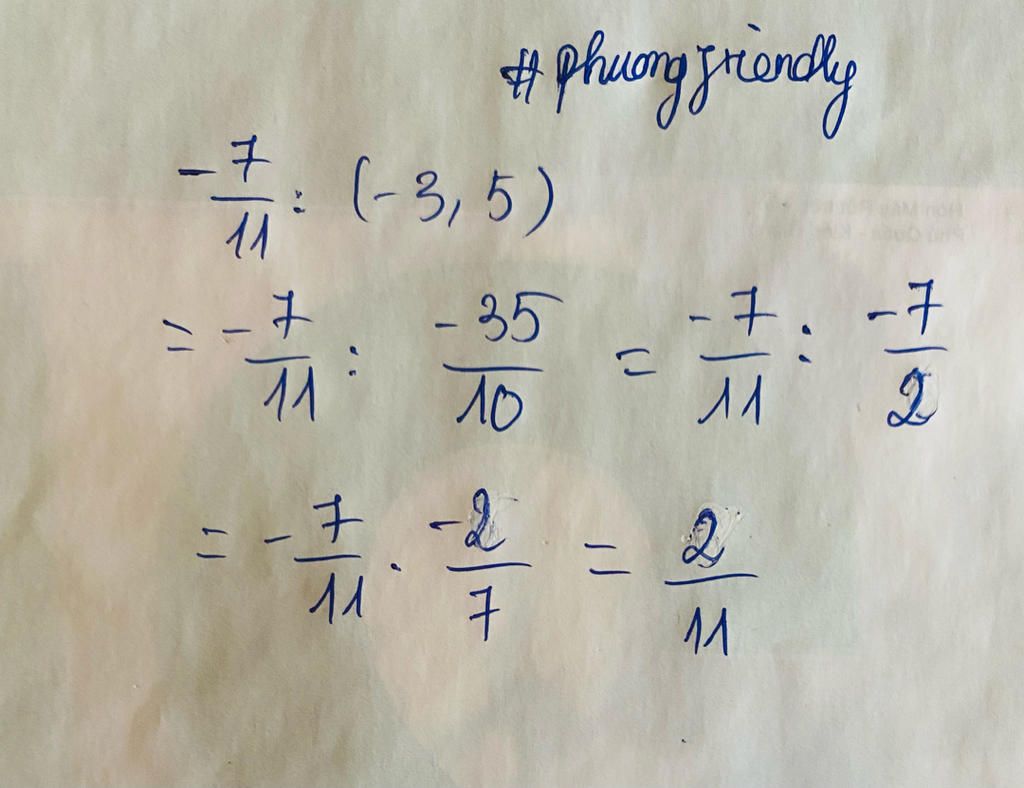 #phuongfriendly
-7/11 : (-3,5)
= -7/11 : -35/10 = -7/11 : -7/2
= -7/11 . -2/7 = 2/11